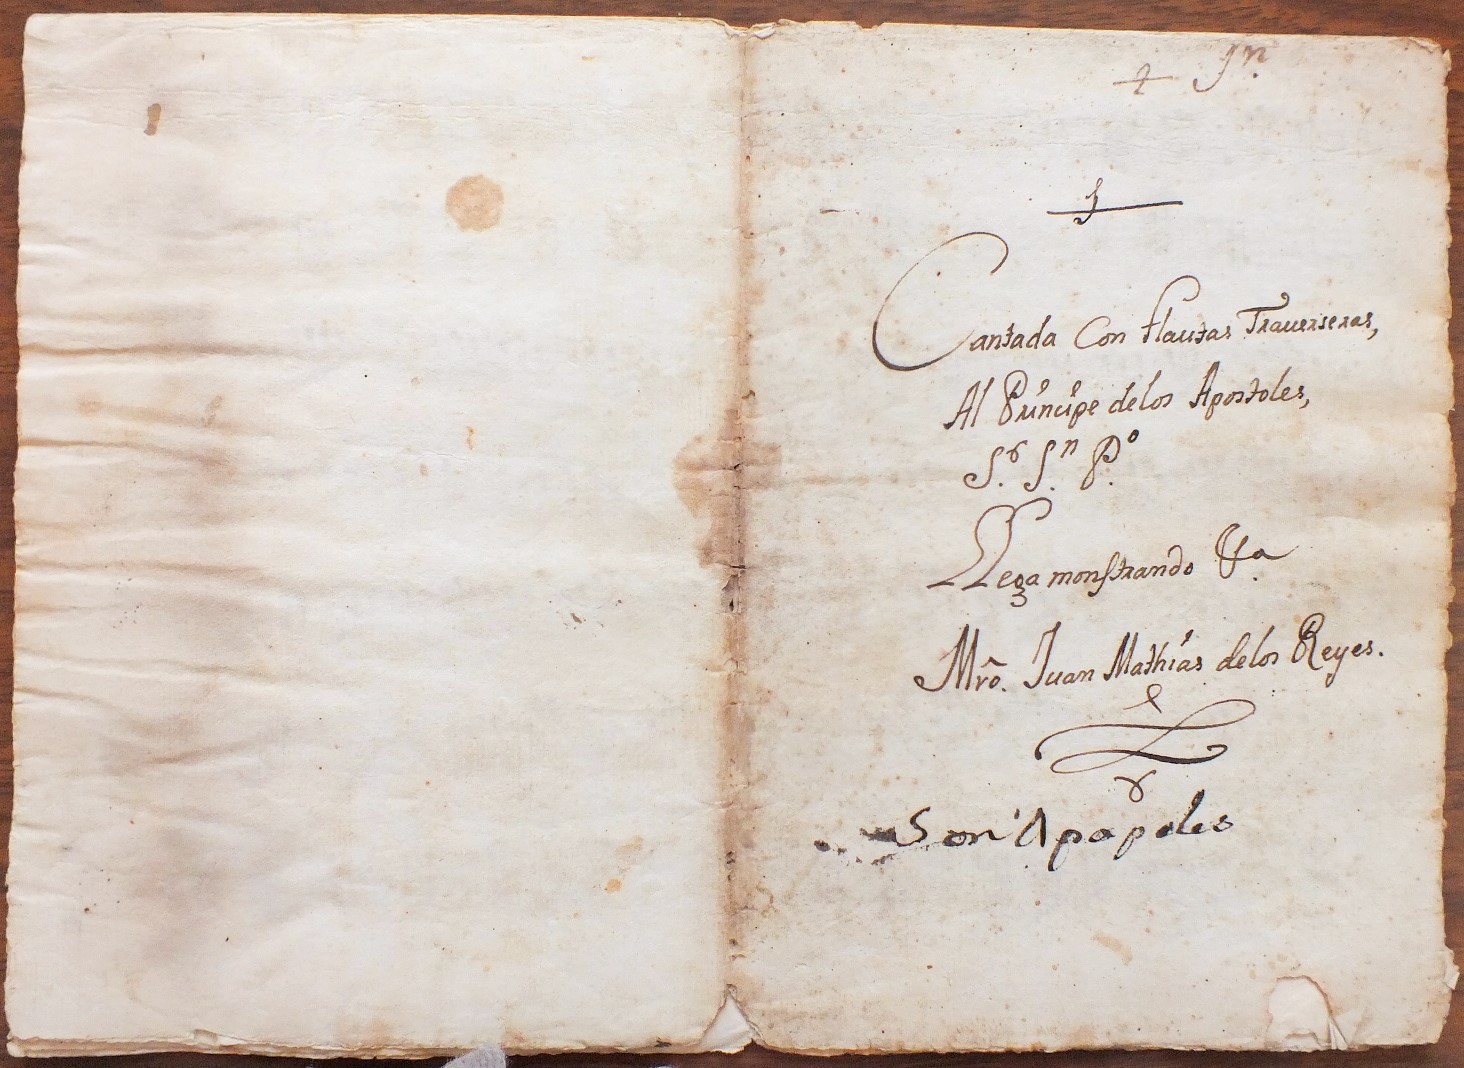 Cantada Con flautas Traverseras,
Al Principe delos Apostoles,
S.r S.n P.o
Llega monstrando &.a
Mrõ. Juan Mathias delos Reyes.
Son papeles